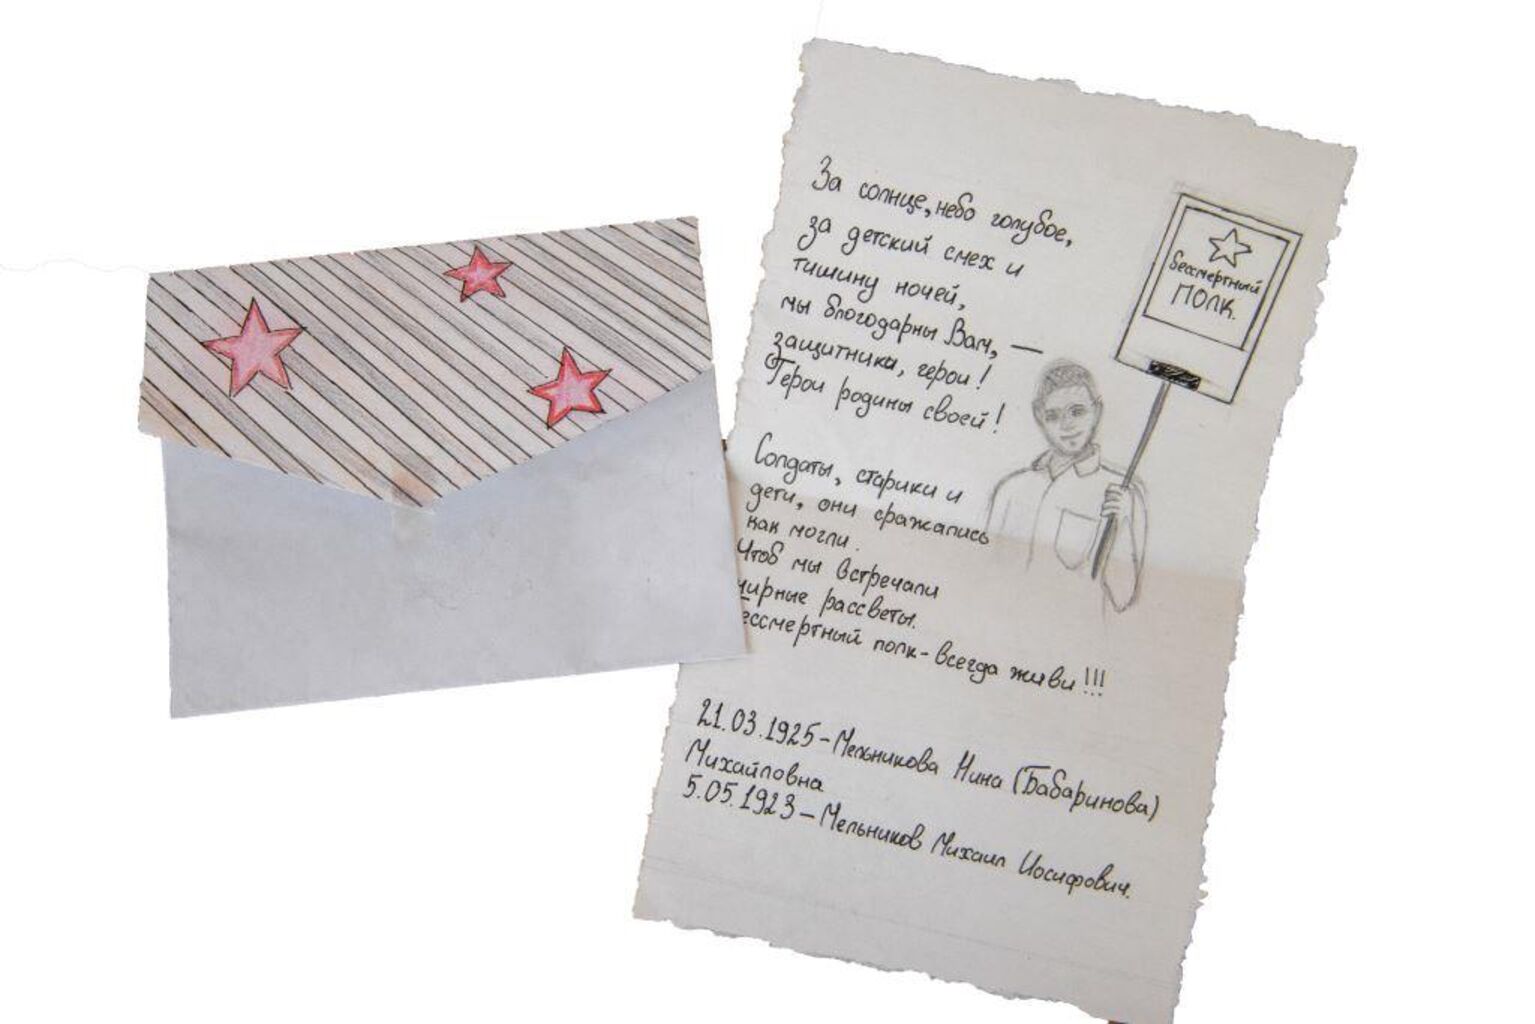 За солнце, небо голубое,
за детский смех и
тишину ночей,
мы благодарны Вам, —
защитника, герои!
Герои родины своей!
Солдаты, старики и
дети, они сражались
как могли.
Чтоб мы встречали
мирные рассветы.
ессмертный полк - всегда живи!!!
21.03.1925 - Мельникова Нина (Бабаринова)
Михайловна
5.05.1923 - Мельников Михаил Иосифович.
Бессмертный
ПОЛК.